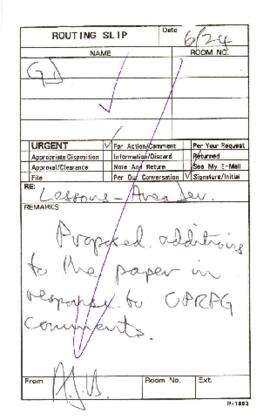 ROUTING SLIP
Date 6/24
NAME ROOM NO.
GD
URGENT For Action/Comment Per Your Request
Appropriate Disposition Information/Discard Returned
Approval/Clearance Note And Return See My E-Mail
File Per Our Conversation Signature/Initial
RE:
Lessons - Area Dev.
REMARKS
Proposed additions
to the paper in
response to OPRPG
comments.
From Room No. Ext.
P-1862